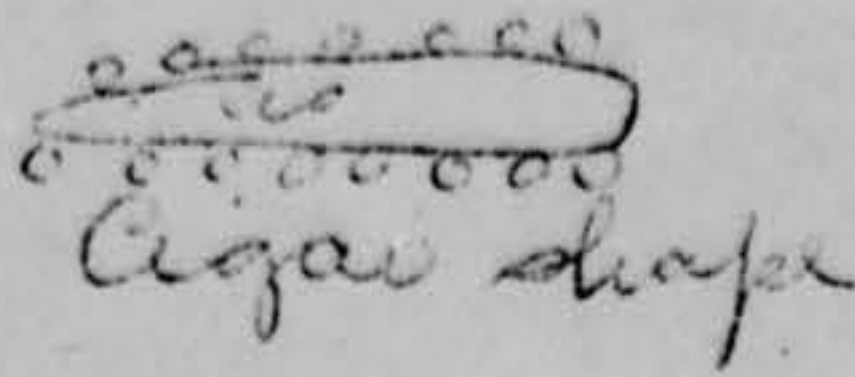 Cigar shape